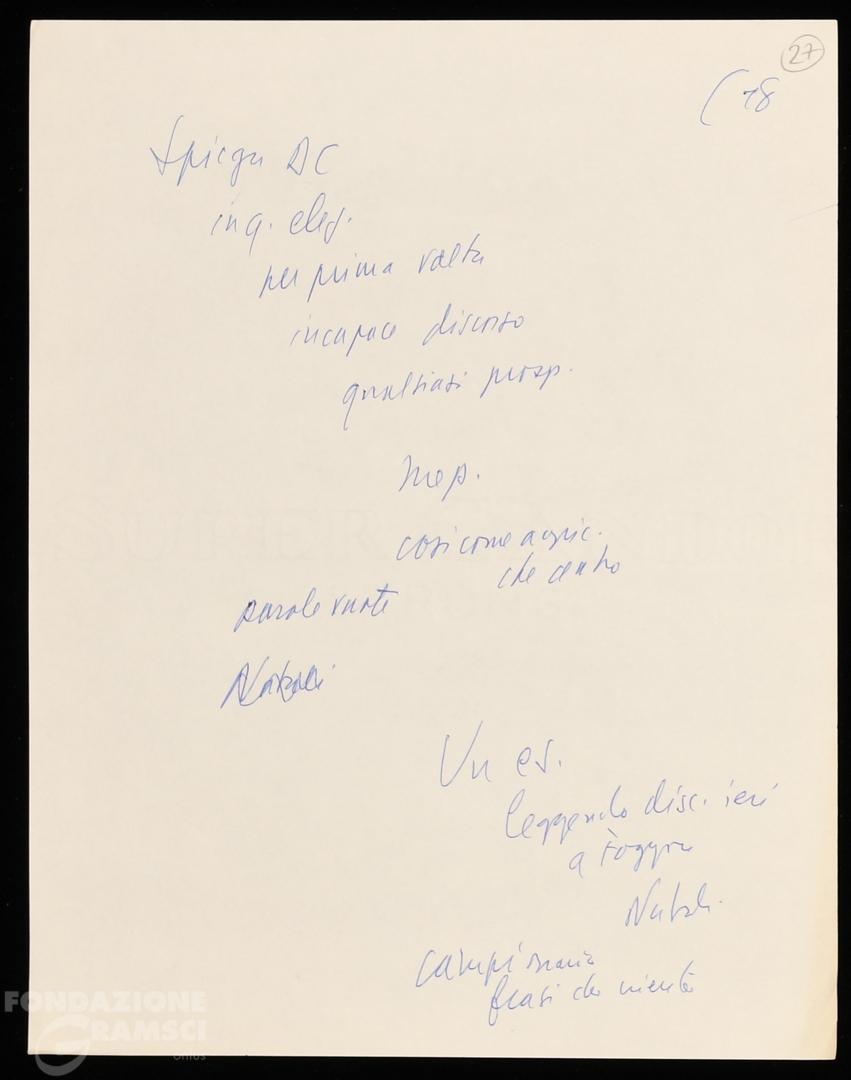 27
( 18
Spiega DC
ing. eleg.
per prima volta
incapace discorso
qualsiasi prosp.
Mep.
così come agric.
che centro
parole vuote
Natali
Un es.
leggendo disc. ieri
a Foggia
Natali
campionario
frasi da niente
FONDAZIONE
GRAMSCI
onlus